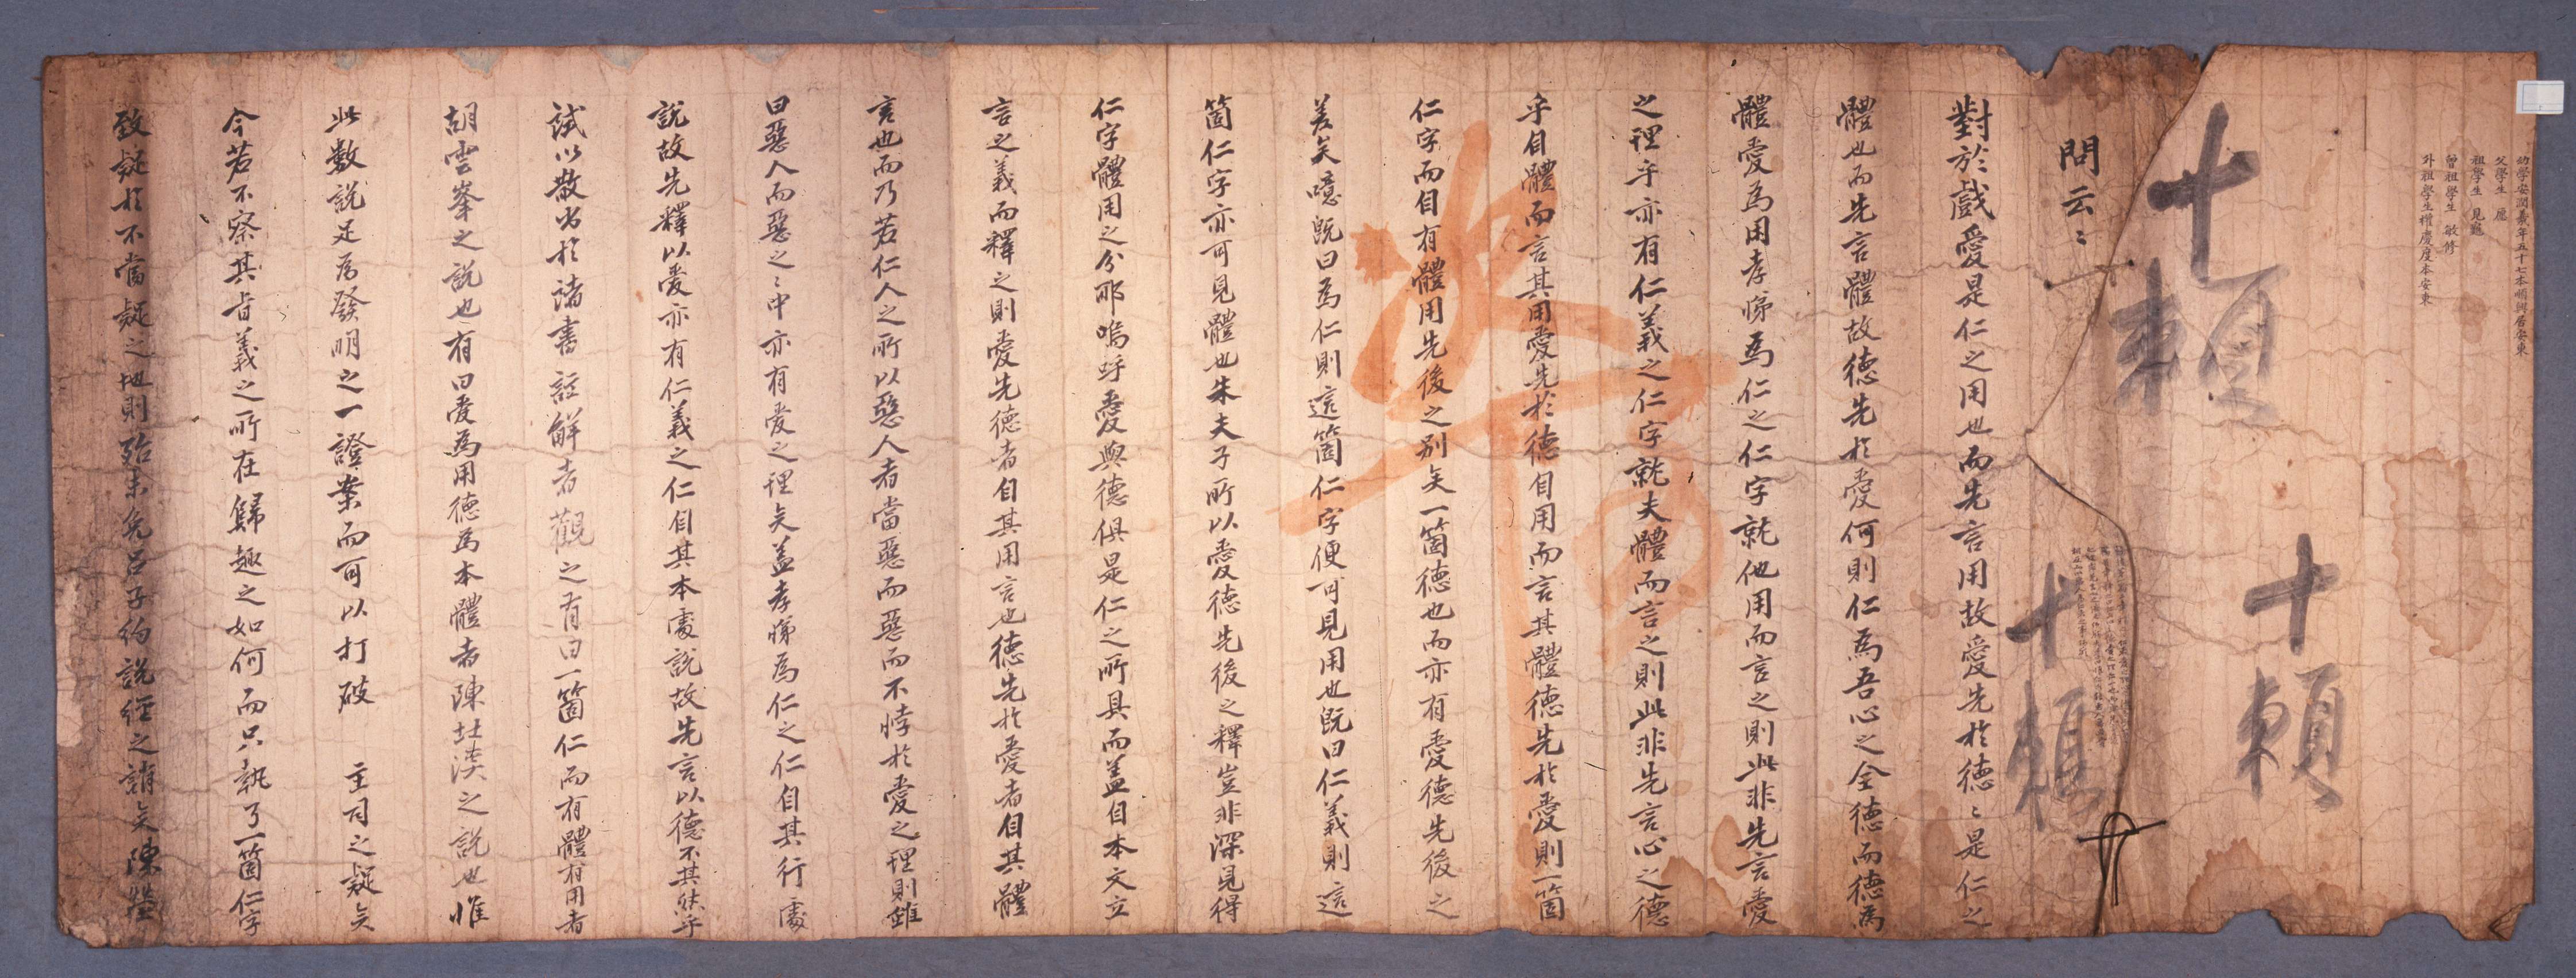 幼學安潤義年五十七本順興居安東
父學生 應
祖學生 見龜
曾祖學生 敏修
外祖學生權慶度本安東
十賴
十賴
十賴
問云〻
對於戱愛是仁之用也而先言用故愛先於德〻是仁之
體也而先言體故德先於愛何則仁爲吾心之全德而德爲
體愛爲用孝悌爲仁之仁字就他用而言之則此非先言愛
之理乎亦有仁義之仁字就夫體而言之則此非先言心之德
乎自體而言其用愛先於德自用而言其體德先於愛則一箇
仁字而自有體用先後之别矣一箇德也而亦有愛德先後之
差矣噫旣曰爲仁則這箇仁字便可見用也旣曰仁義則這
箇仁字亦可見體也朱夫子所以愛德先後之釋豈非深見得
仁字體用之分耶嗚呼愛與德俱是仁之所具而盖自本文立
言之義而釋之則愛先德者自其用言也德先於愛者自其體
言也而乃若仁人之所以惡人者當惡而惡而不悖於愛之理則雖
曰惡人而惡之〻中亦有愛之理矣盖孝悌爲仁之仁自其行處
說故先釋以愛亦有仁義之仁自其本處說故先言以德不其然乎
試以散出於諸書註解者觀之有曰一箇仁而有體有用者
胡雲峯之說也有曰愛爲用德爲本體者陳北溪之說也惟
此數說足爲發明之一證案而可以打破 主司之疑矣
今若不察其旨義之所在歸趣之如何而只執了一箇仁字
致疑於不當疑之地則殆未免呂子約說經之誚矣陳